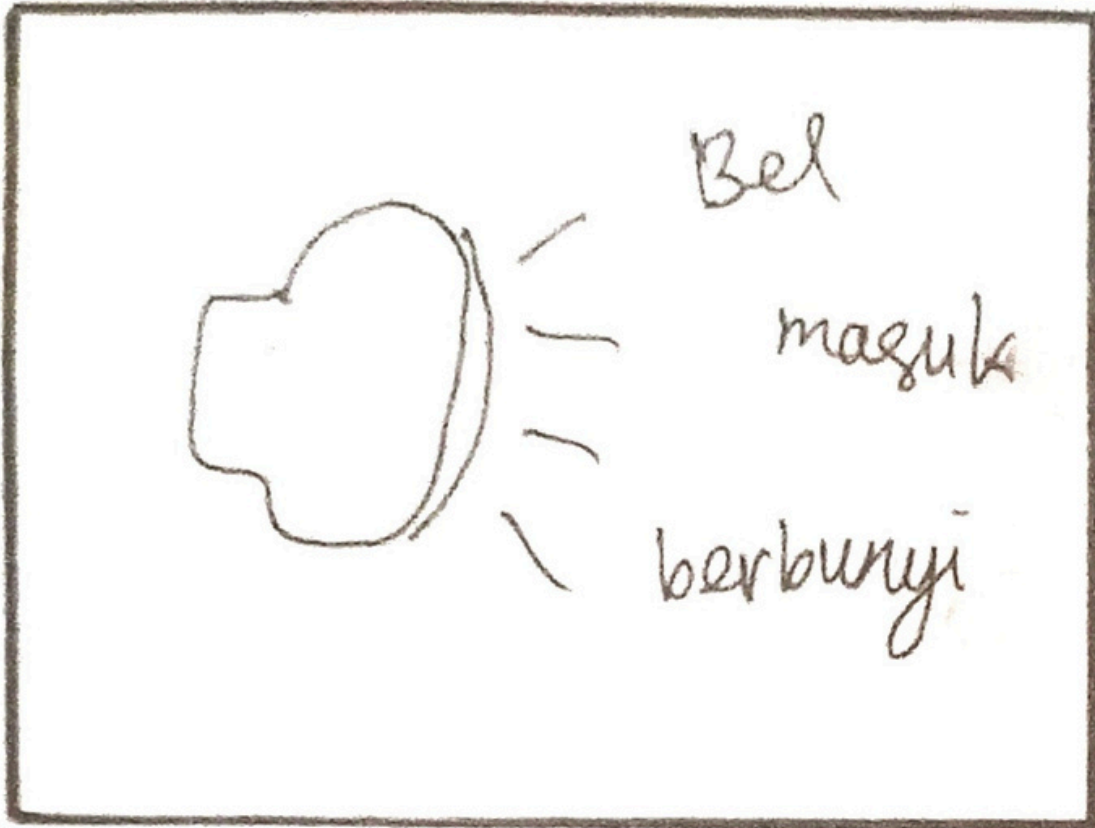 Bel
masuk
berbunyi